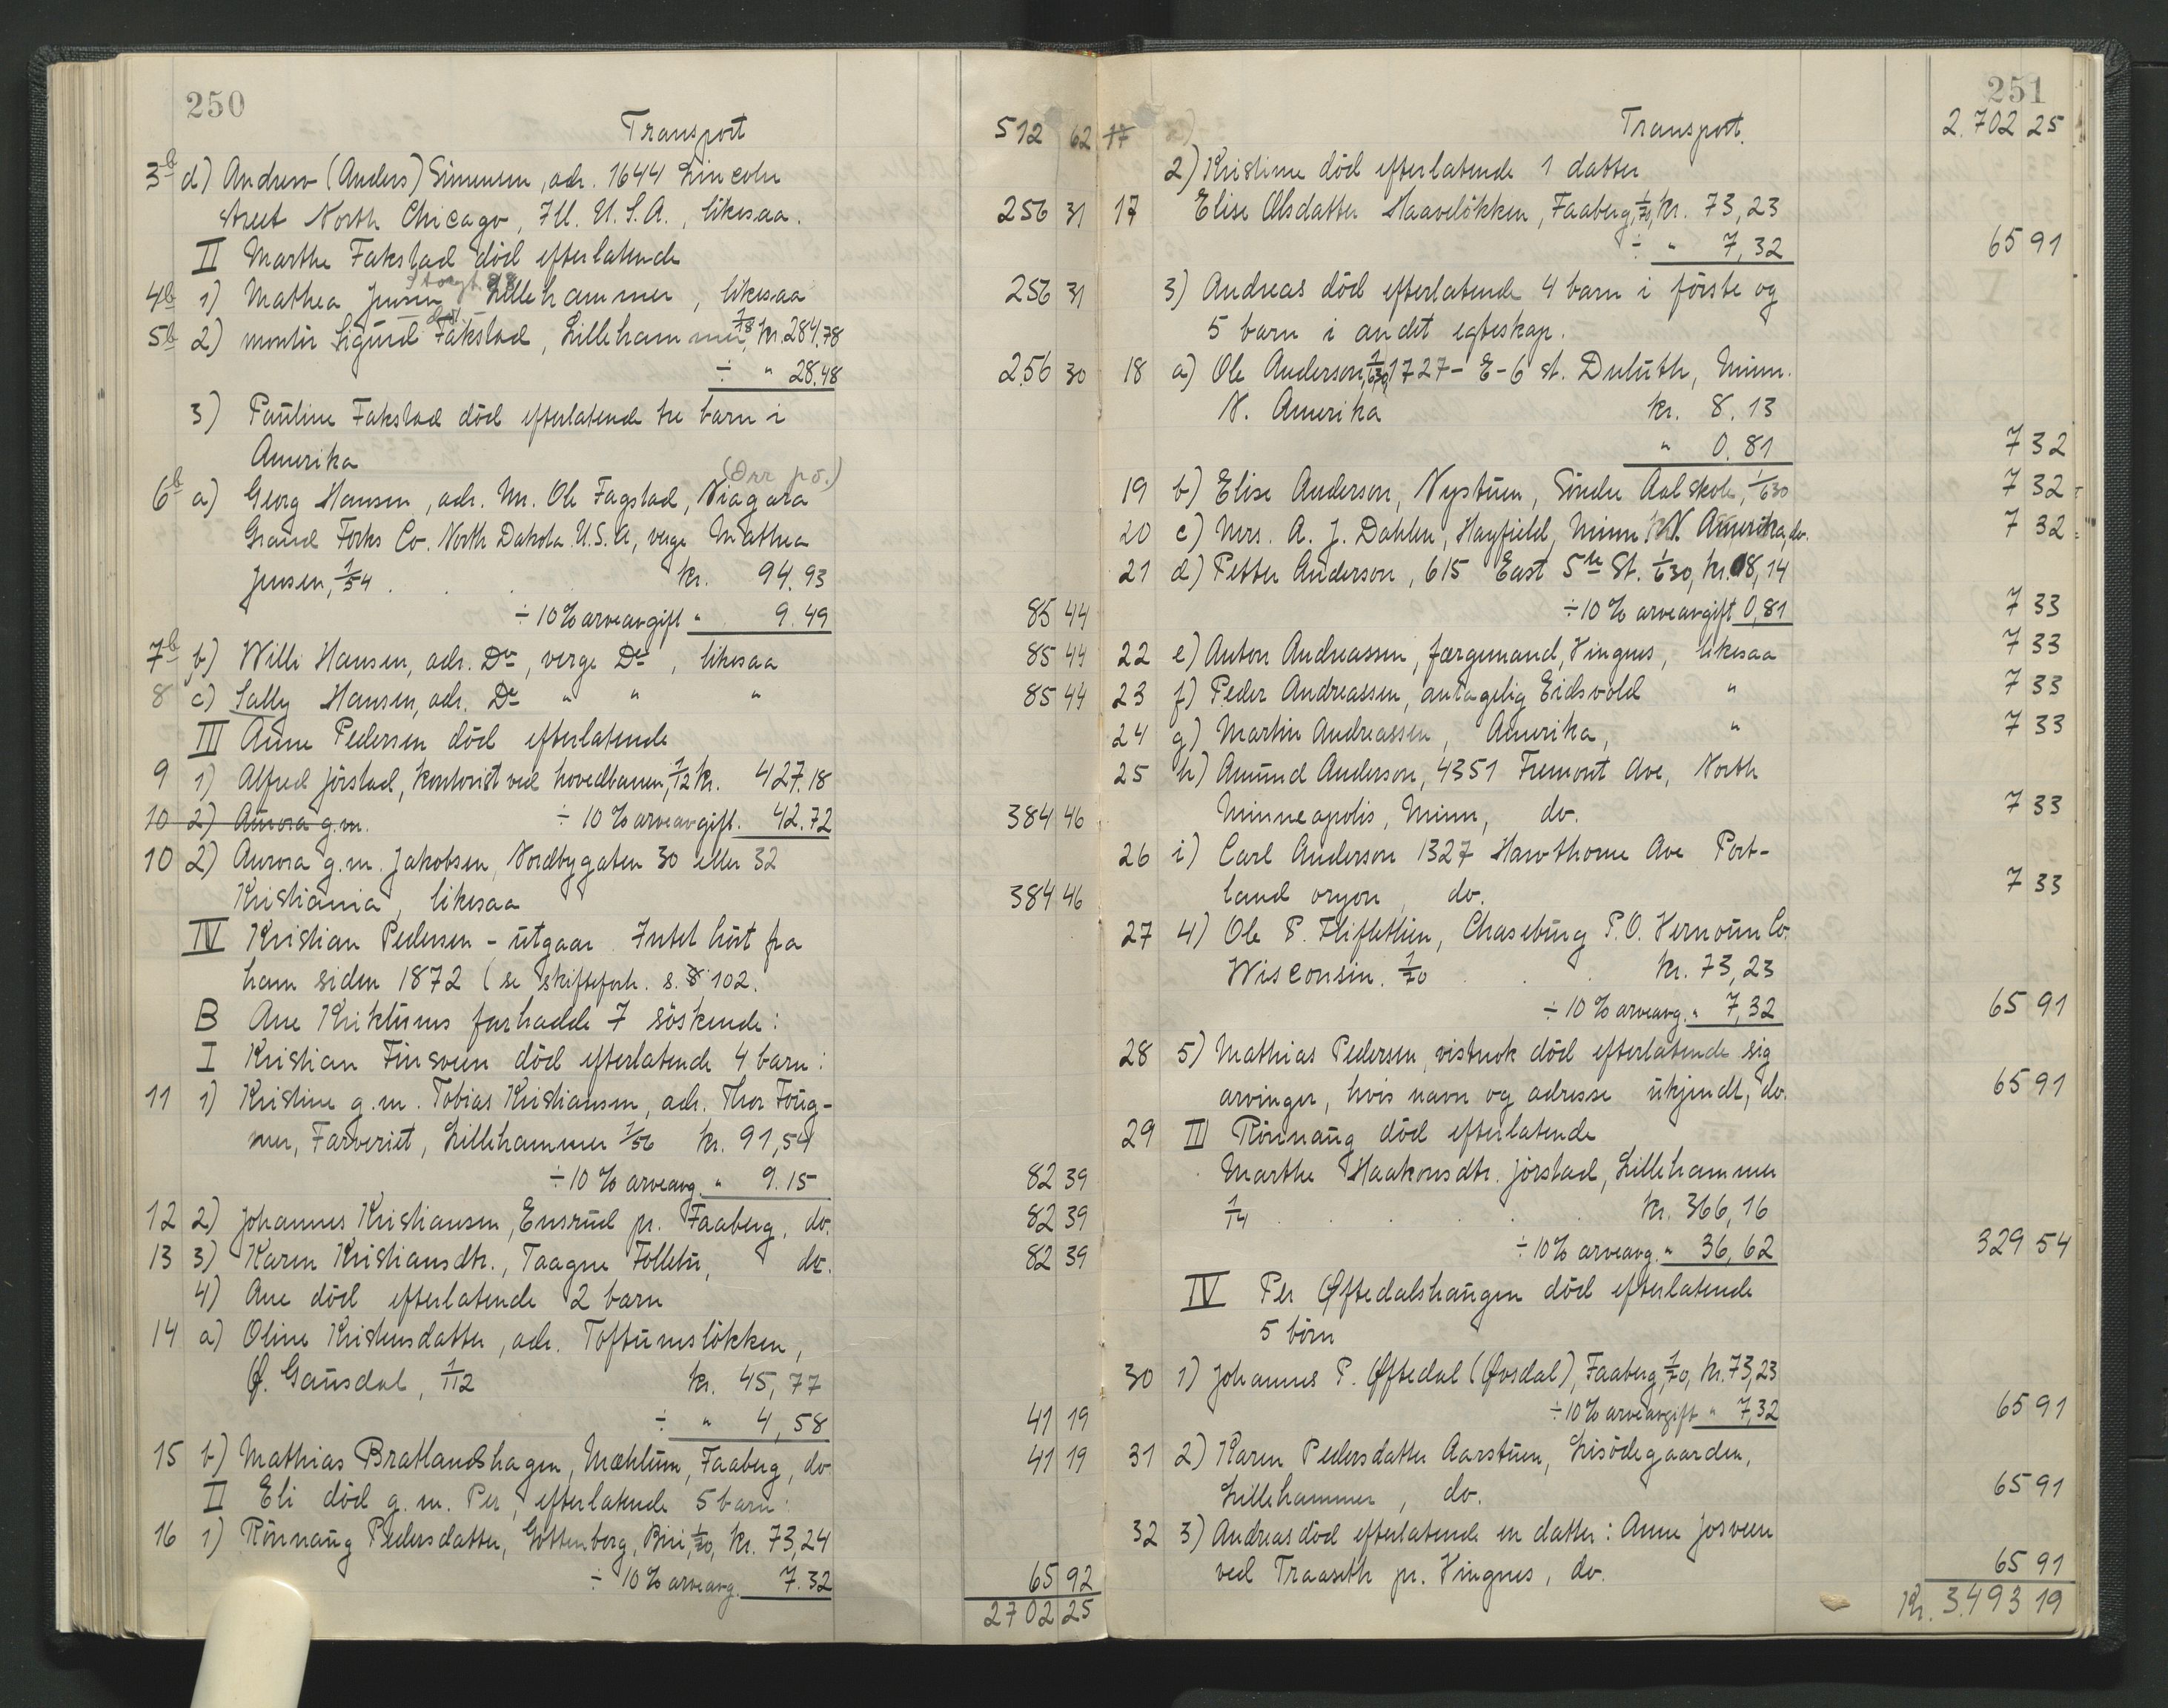 250
Transport 512 62
3b d) Andrew (Anders) Simensen, adr. 1644 Lincoln
street North Chicago, Ill. U.S.A., likesaa. 256 31
II Marthe Fakstad död efterlatende
Storgt 88
4b 1) Mathea Jensen Lillehammer, likesaa 256 31
död
5b 2) montör Sigurd Fakstad, Lillehammer, 1/18 kr. 284,78
÷ " 28.48 256 30
3) Pauline Fakstad död efterlatende tre barn i
Amerika
(Orr p.o.)
6b a) Georg Hansen, adr. Mr. Ole Fagstad, Niagara
Grand Forks Co. North Dakota U.S.A, verge Mathea
Jensen, 1/54 . . . kr. 94.93
÷ 10% arveavgift " 9.49 85 44
7b b) Willi Hansen, adr. Do, verge Do, likesaa 85 44
8 c) Sally Hansen, adr. Do " " " 85 44
III Anne Pedersen död efterlatende
9 1) Alfred Jörstad, kontorist ved hovedbanen, 1/12 kr. 427.18
10 2) Aurora g.m. ÷ 10% arveavgift. 42.72 384 46
10 2) Aurora g.m. Jakobsen, Nordbygaten 30 eller 32
Kristiania, likesaa 384 46
IV Kristian Pedersen - utgaar. Intet hört fra
ham siden 1872 (se skifteforh. s. 8 102.
B Ane Kriktums far hadde 7 söskende:
I Kristian Finsveen död efterlatende 4 barn:
11 1) Kristine g.m. Tobias Kristiansen, adr. Thor Foug-
ner, Farveriet, Lillehammer 1/56 kr. 91,54
÷ 10% arveavg. " 9.15 82 39
12 2) Johannes Kristiansen, Ensrud pr. Faaberg, do. 82 39
13 3) Karen Kristiansdtr., Taagne Folletu, do. 82 39
4) Ane död efterlatende 2 barn
14 a) Oline Kristensdatter, adr. Toftumslökken,
Ø. Gausdal, 1/112 kr. 45,77
÷ " 4,58 41 19
15 b) Mathias Bratlandshagen, Mæhlum, Faaberg, do 41 19
II Eli död g.m. Per, efterlatende 5 barn:
16 1) Rönnaug Pedersdatter, Gottenborg, Biri, 1/70, kr. 73,24
÷ 10% arveavg. 7.32 65 92
2702 25
251
17 Transport. 2.702 25
2) Kristine död efterlatende 1 datter
17 Elise Olsdatter Haavelökken, Faaberg, 1/70, kr. 73,23
÷ " 7,32 65 91
3) Andreas död efterlatende 4 barn i förste og
5 barn i andet egteskap.
18 a) Ole Anderson, 1/630, 1727-E-6 st. Duluth, Minn.
N. Amerika kr. 8.13
" 0.81 7 32
19 b) Elise Anderson, Nystuen, Söndre Aal skole, 1/630 7 32
20 c) Mrs. A. J. Dahlen, Hayfield, Minn. N. Amerika, do. 7 32
21 d) Petter Anderson, 615 East 5th St. 1/630, kr. 8,14
÷ 10% arveavgift 0,81 7 33
22 e) Anton Andreassen, færgemand, Vingnes, likesaa 7 33
23 f) Peder Andreassen, antagelig Eidsvold " 7 33
24 g) Martin Andreassen, Amerika, " 7 33
25 h) Amund Anderson, 4351 Fremont Ave, North
Minneapolis, Minn, do. 7 33
26 i) Carl Anderson 1327 Hawthorne Ave Port-
land orgon, do. 7 33
27 4) Ole P. Fliflethien, Chaseburg P.O. Vernoun Co.
Wisconsin. 1/70 . . kr. 73,23
÷ 10% arveavg. " 7,32 65 91
28 5) Mathias Pedersen, vistnok död efterlatende sig
arvinger, hvis navn og adresse ukjendt, do. 65 91
29 III Rönnaug död efterlatende
Marthe Haakonsdtr. Jörstad, Lillehammer
1/14 . . . . kr. 366,16
÷ 10% arveavg. " 36,62 329 54
IV Per Øftedalshaugen död efterlatende
5 börn
30 1) Johannes P. Øftedal (Øvsdal), Faaberg, 1/70, kr. 73,23
÷ 10% arveavgift " 7,32 65 91
31 2) Karen Pedersdatter Aarstuen, Lisödegaarden,
Lillehammer, do. 65 91
32 3) Andreas död efterlatende en datter: Anne Josveen
ved Traaseth pr. Vingnes, do. 65 91
Kr. 3.493 19